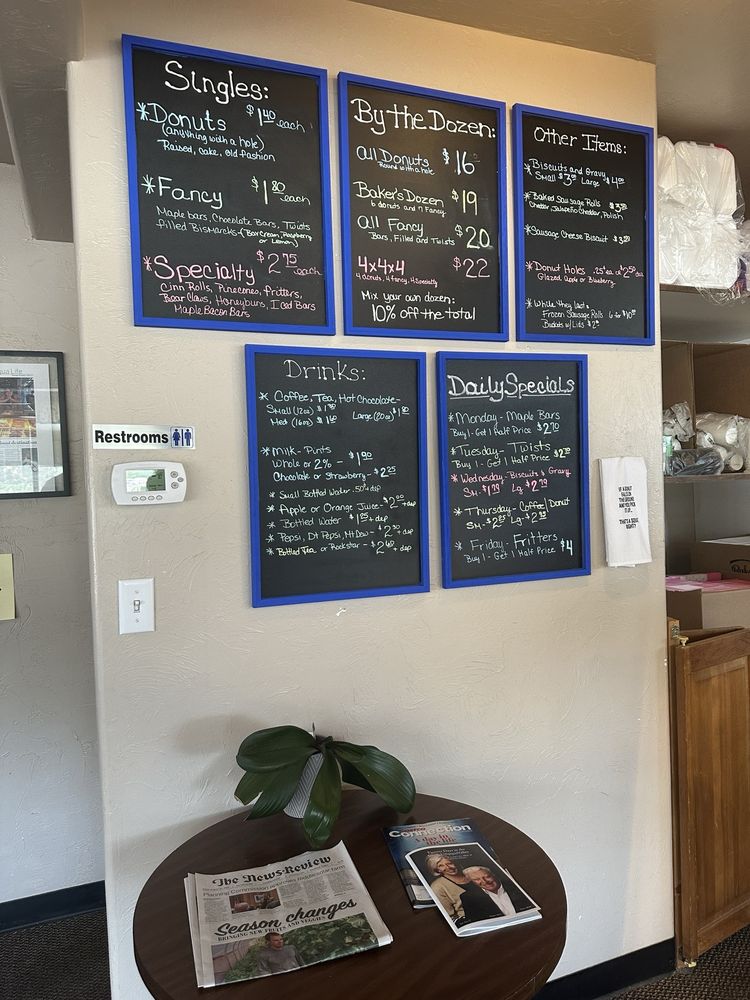 Singles:
*Donuts $1.40 each
(anything with a hole)
Raised, cake, old fashion
*Fancy $1.80 each
Maple bars, Chocolate Bars, Twists
filled Bismarcks-(Bar Cream, Raspberry
or Lemon)
*Specialty $2.75 each
Cinn Rolls, Pinecones, fritters,
Bear Claws, Honeybuns, Iced Bars
Maple Bacon Bars
By The Dozen:
All Donuts $16
Round with a hole
Baker's Dozen $19
6 donuts and 7 Fancy
All Fancy $20
Bars, Filled and Twists
4x4x4 $22
4 donuts, 4 fancy, 4 Specialty
Mix your own dozen:
10% off the total
Other Items:
*Biscuits and Gravy
Small Large
*Baked Sausage Rolls
Cheddar, Jalapeño Cheddar, Polish
*Sausage Cheese Biscuit
*Donut Holes .25 ea
Glazed Apple or Blueberry
*While they last
Frozen Sausage Rolls
Buckets w/Lids
Drinks:
* Coffee, Tea, Hot Chocolate-
Small (12oz) Large (20oz)
Med (16oz)
* Milk-Pints
Whole or 2% - $1.90
Chocolate or Strawberry - $2.25
* Small Bottled Water .50 + dep
* Apple or Orange Juice + dep
* Bottled Water + dep
* Pepsi, Dt Pepsi, Mt Dew + dep
* Bottled Tea or Rockstar + dep
Daily Specials
* Monday - Maple Bars
Buy 1 - Get 1 Half Price $2.70
* Tuesday - Twists
Buy 1 - Get 1 Half Price $2.70
* Wednesday - Biscuits & Gravy
Sm. Lg.
* Thursday - Coffee/Donut
Sm. Lg.
* Friday - Fritters
Buy 1 - Get 1 Half Price $4
Restrooms
IF A DONUT
FALLS ON
THE GROUND
AND YOU PICK
IT UP...
THAT'S A SQUAT,
RIGHT?
The News-Review
Season changes
BRINGING NEW FRUITS AND VEGGIES
Connection